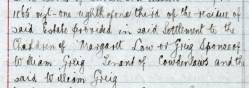 1866 not- one eighth of one third of the residue of
said Estate provided in said Settlement to the
Children of Margaret Law or Greig Spouse of
William Greig, Tenant of Cowdenlaws and the
said William Greig